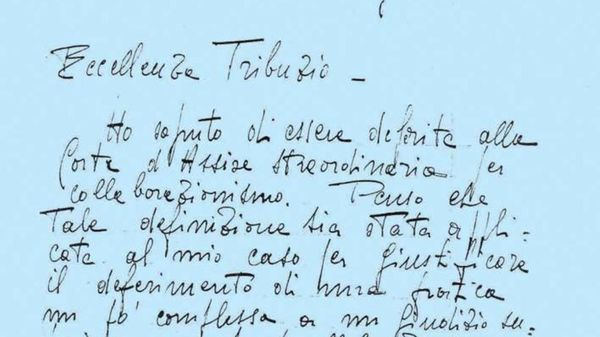 Eccellenza Tribuzio -
Ho saputo di essere deferita alla
Corte d'Assise straordinaria per
collaborazionismo. Penso che
Tale definizione sia stata appli-
cata al mio caso per giustificare
il deferimento di una pratica
un po' complessa a un giudizio su-